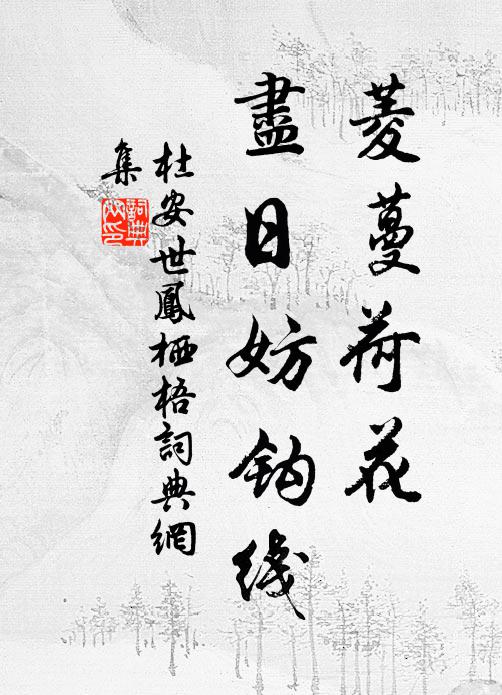 菱蔓荷花
盡日妨鈎綫
杜安世鳳栖梧詞典網
集
詞典网印